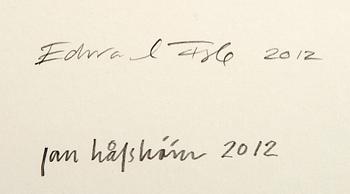 Edward 2012
Jan Håfström 2012